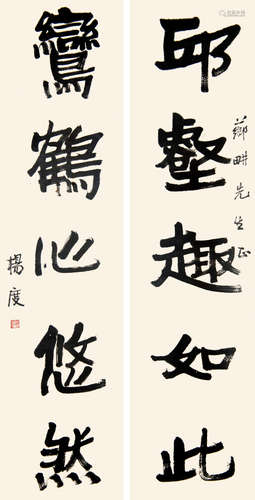 邱壑趣如此
藹畊先生正
鸞鶴心悠然
楊度